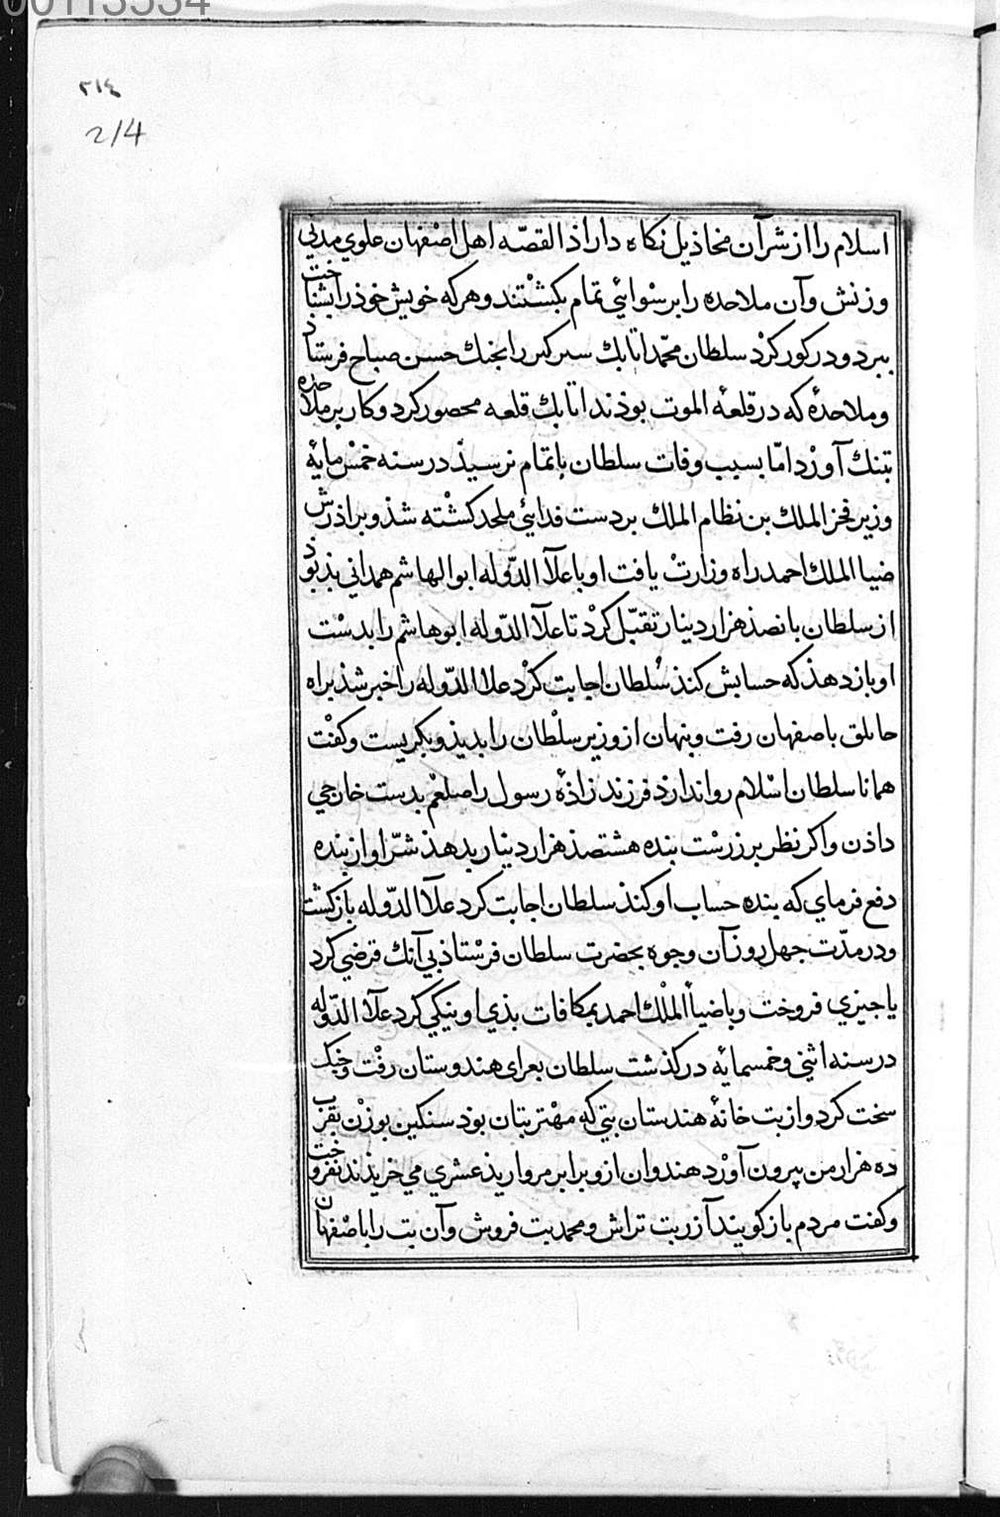 00113534
٢١٤
214
اسلام را از شر آن مخاذیل نکاه داراذ القصّه اهل اصفهان علوی مدنی
و زنش و آن ملاحده را برسوایئ تمام بکشتند و هر که خویش خوذ را بشناخت
ببرد و در کور کرد سلطان محمّد اتابك سیرکیر را بجنك حسن صباح فرستاذ
و ملاحدهٔ که در قلعهٔ الموت بوذند اتابك قلعه محصور کرد و کار بر ملاحده
بتنك آورد امّا بسبب وفات سلطان باتمام نرسیذ در سنه خمس مایهٔ
وزیر فخر الملك بن نظام الملك بر دست فدایئ ملحد کشته شذ و براذرش
ضیا الملك احمد راه وزارت یافت او با علآ الدّوله ابو الهاشم همدانی بذ بوذ
از سلطان بانصذ هزار دینار تقبّل کرد تا علآ الدّوله ابو هاشم را بدست
او بازدهذ که حسابش کنذ سُلطان اجابت کرد علا الدّوله را خبر شذ براه
حابلق باصفهان رفت و بنهان از وزیر سلطان را بدیذ و بکریست و کفت
همانا سلطان اسلام روا ندارذ فرزندزاذهٔ رسول را صلعم بدست خارجی
داذن و اکر نظر بر زرست بنده هشتصذ هزار دینار بدهذ شرّ او از بنده
دفع فرمای که بنده حساب او کنذ سلطان اجابت کرد علآ الدّوله بازکشت
و در مدّت جهل روز آن وجوه بحضرت سلطان فرستاذ بی آنك قرضی کرد
یا جیزی فروخت و با ضیأ الملك احمد بمکافات بذی او نیکی کرد علآ الدّوله
در سنه اثنی و خمسمایه درکذشت سلطان بعزای هندوستان رفت و جنك
سخت کرد و از بت خانهٔ هندستان بتی که مهتر بتان بوذ سنکین بوزن بقرب
ده هزار من بیرون آورد هندوان ازو برابر مروارید عشری می خریذند نفروخت
و کفت مردم باز کویند آزر بت تراش و محمد بت فروش و آن بت را باصفهان